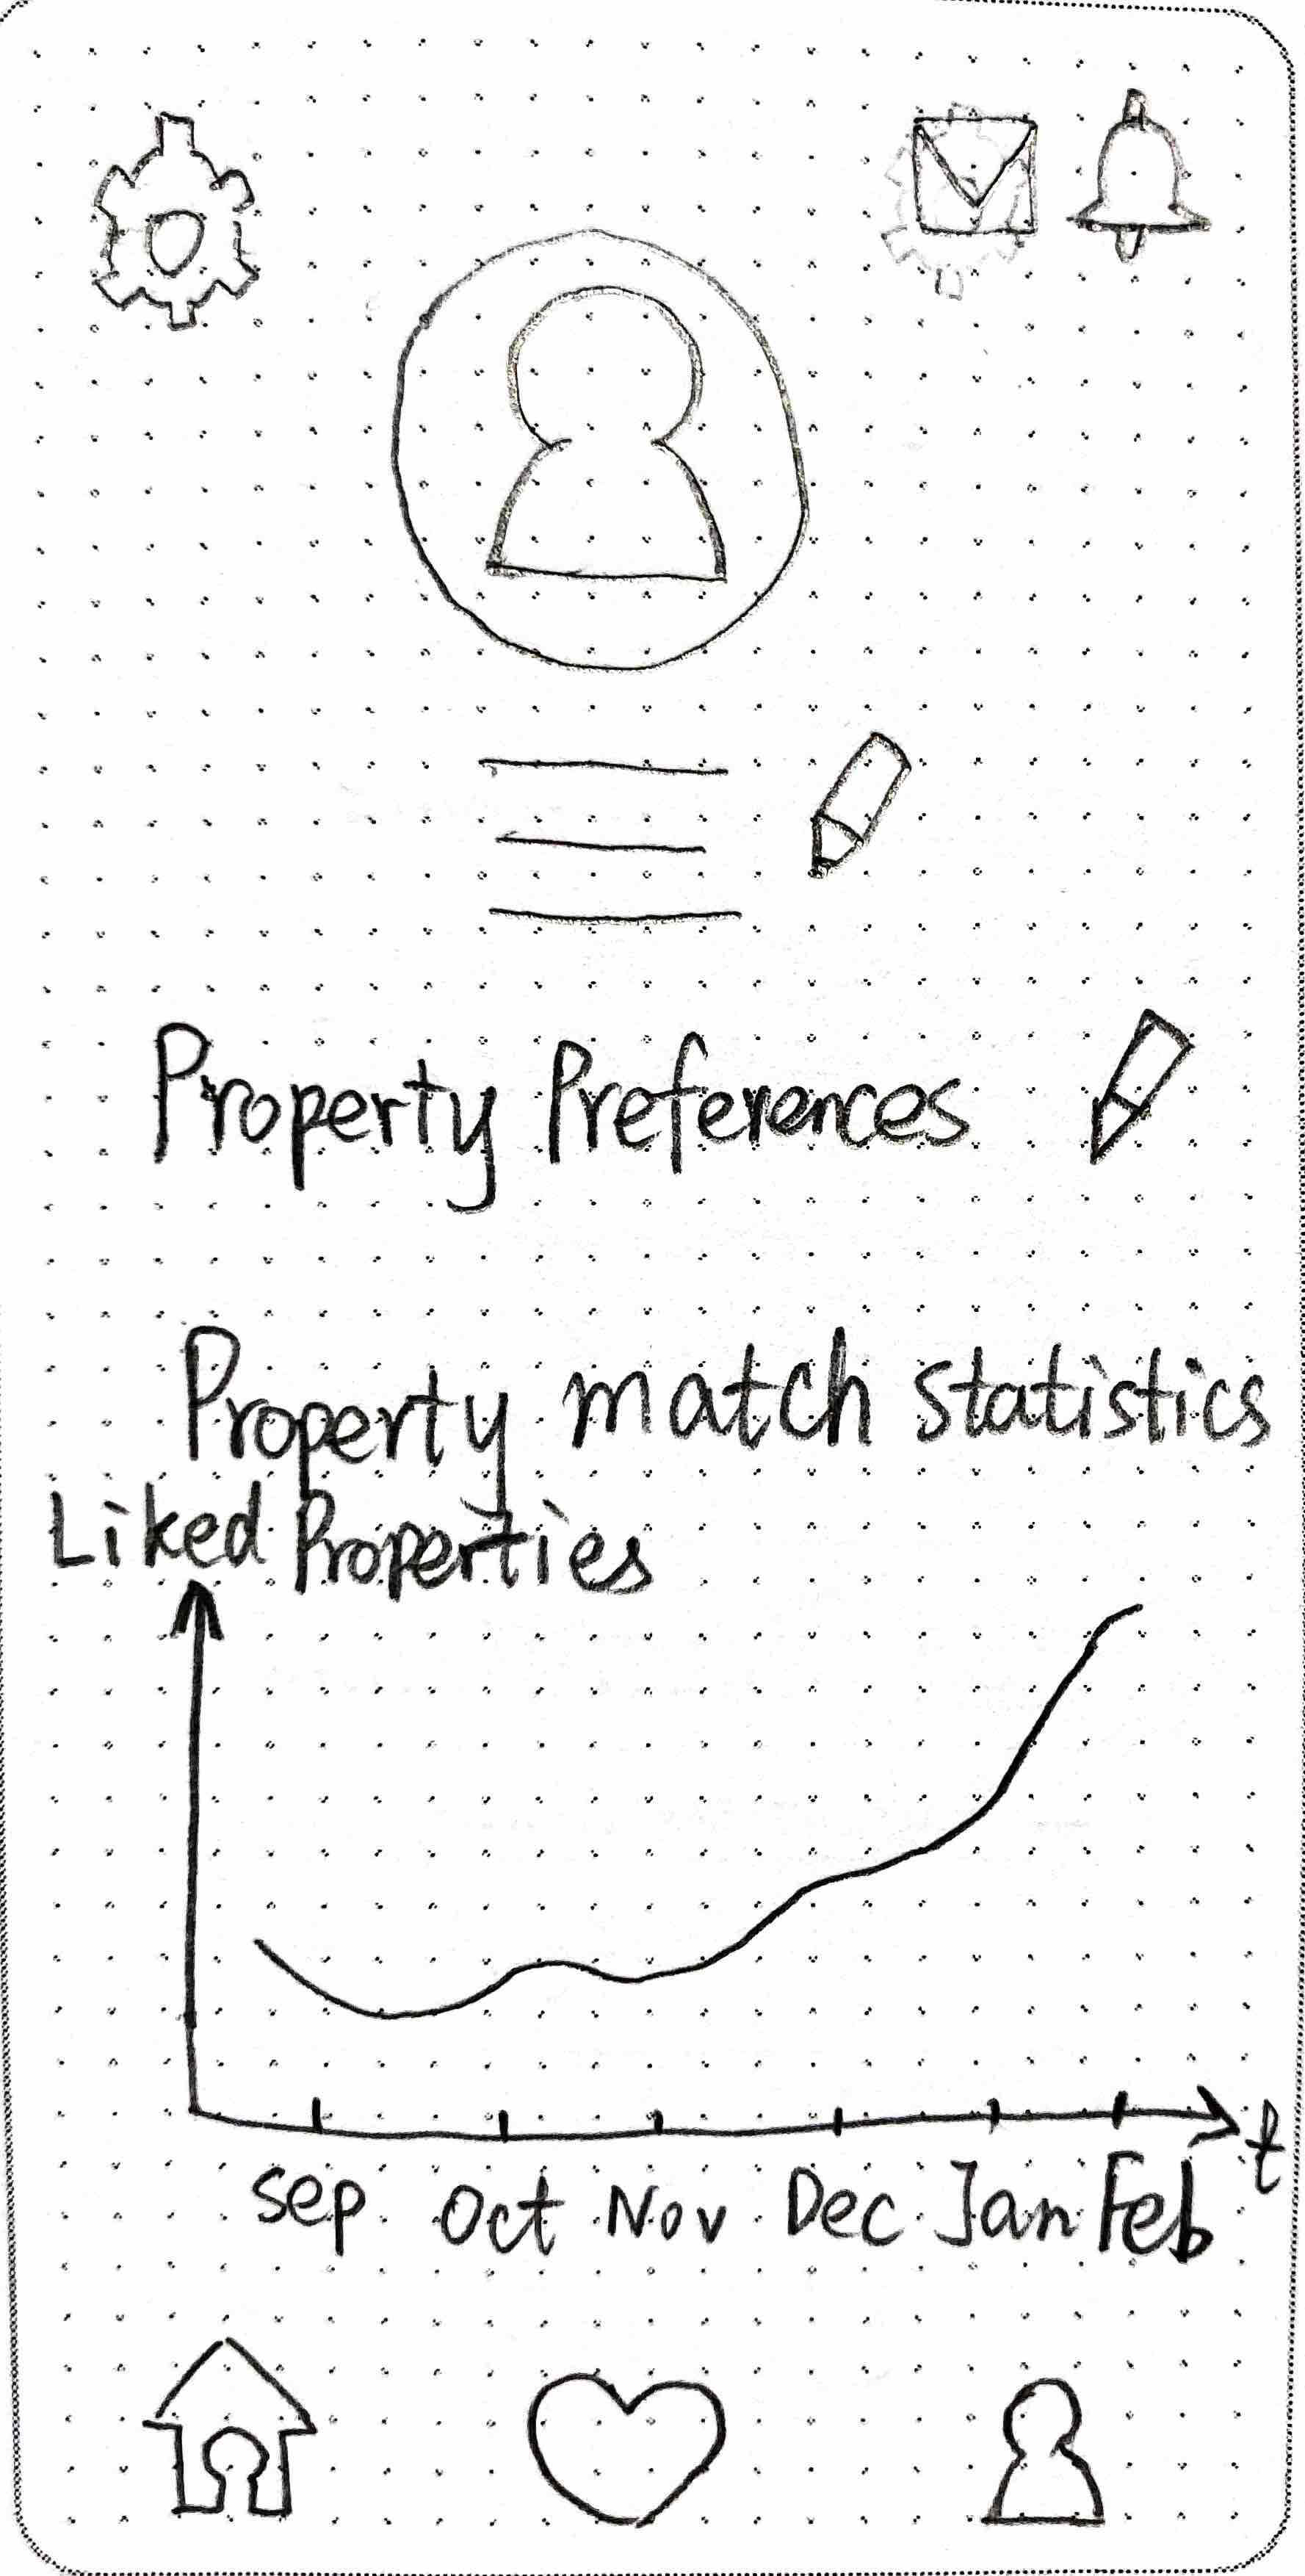 Property Preferences
Property match statistics
Liked Properties
t
Sep Oct Nov Dec Jan Feb